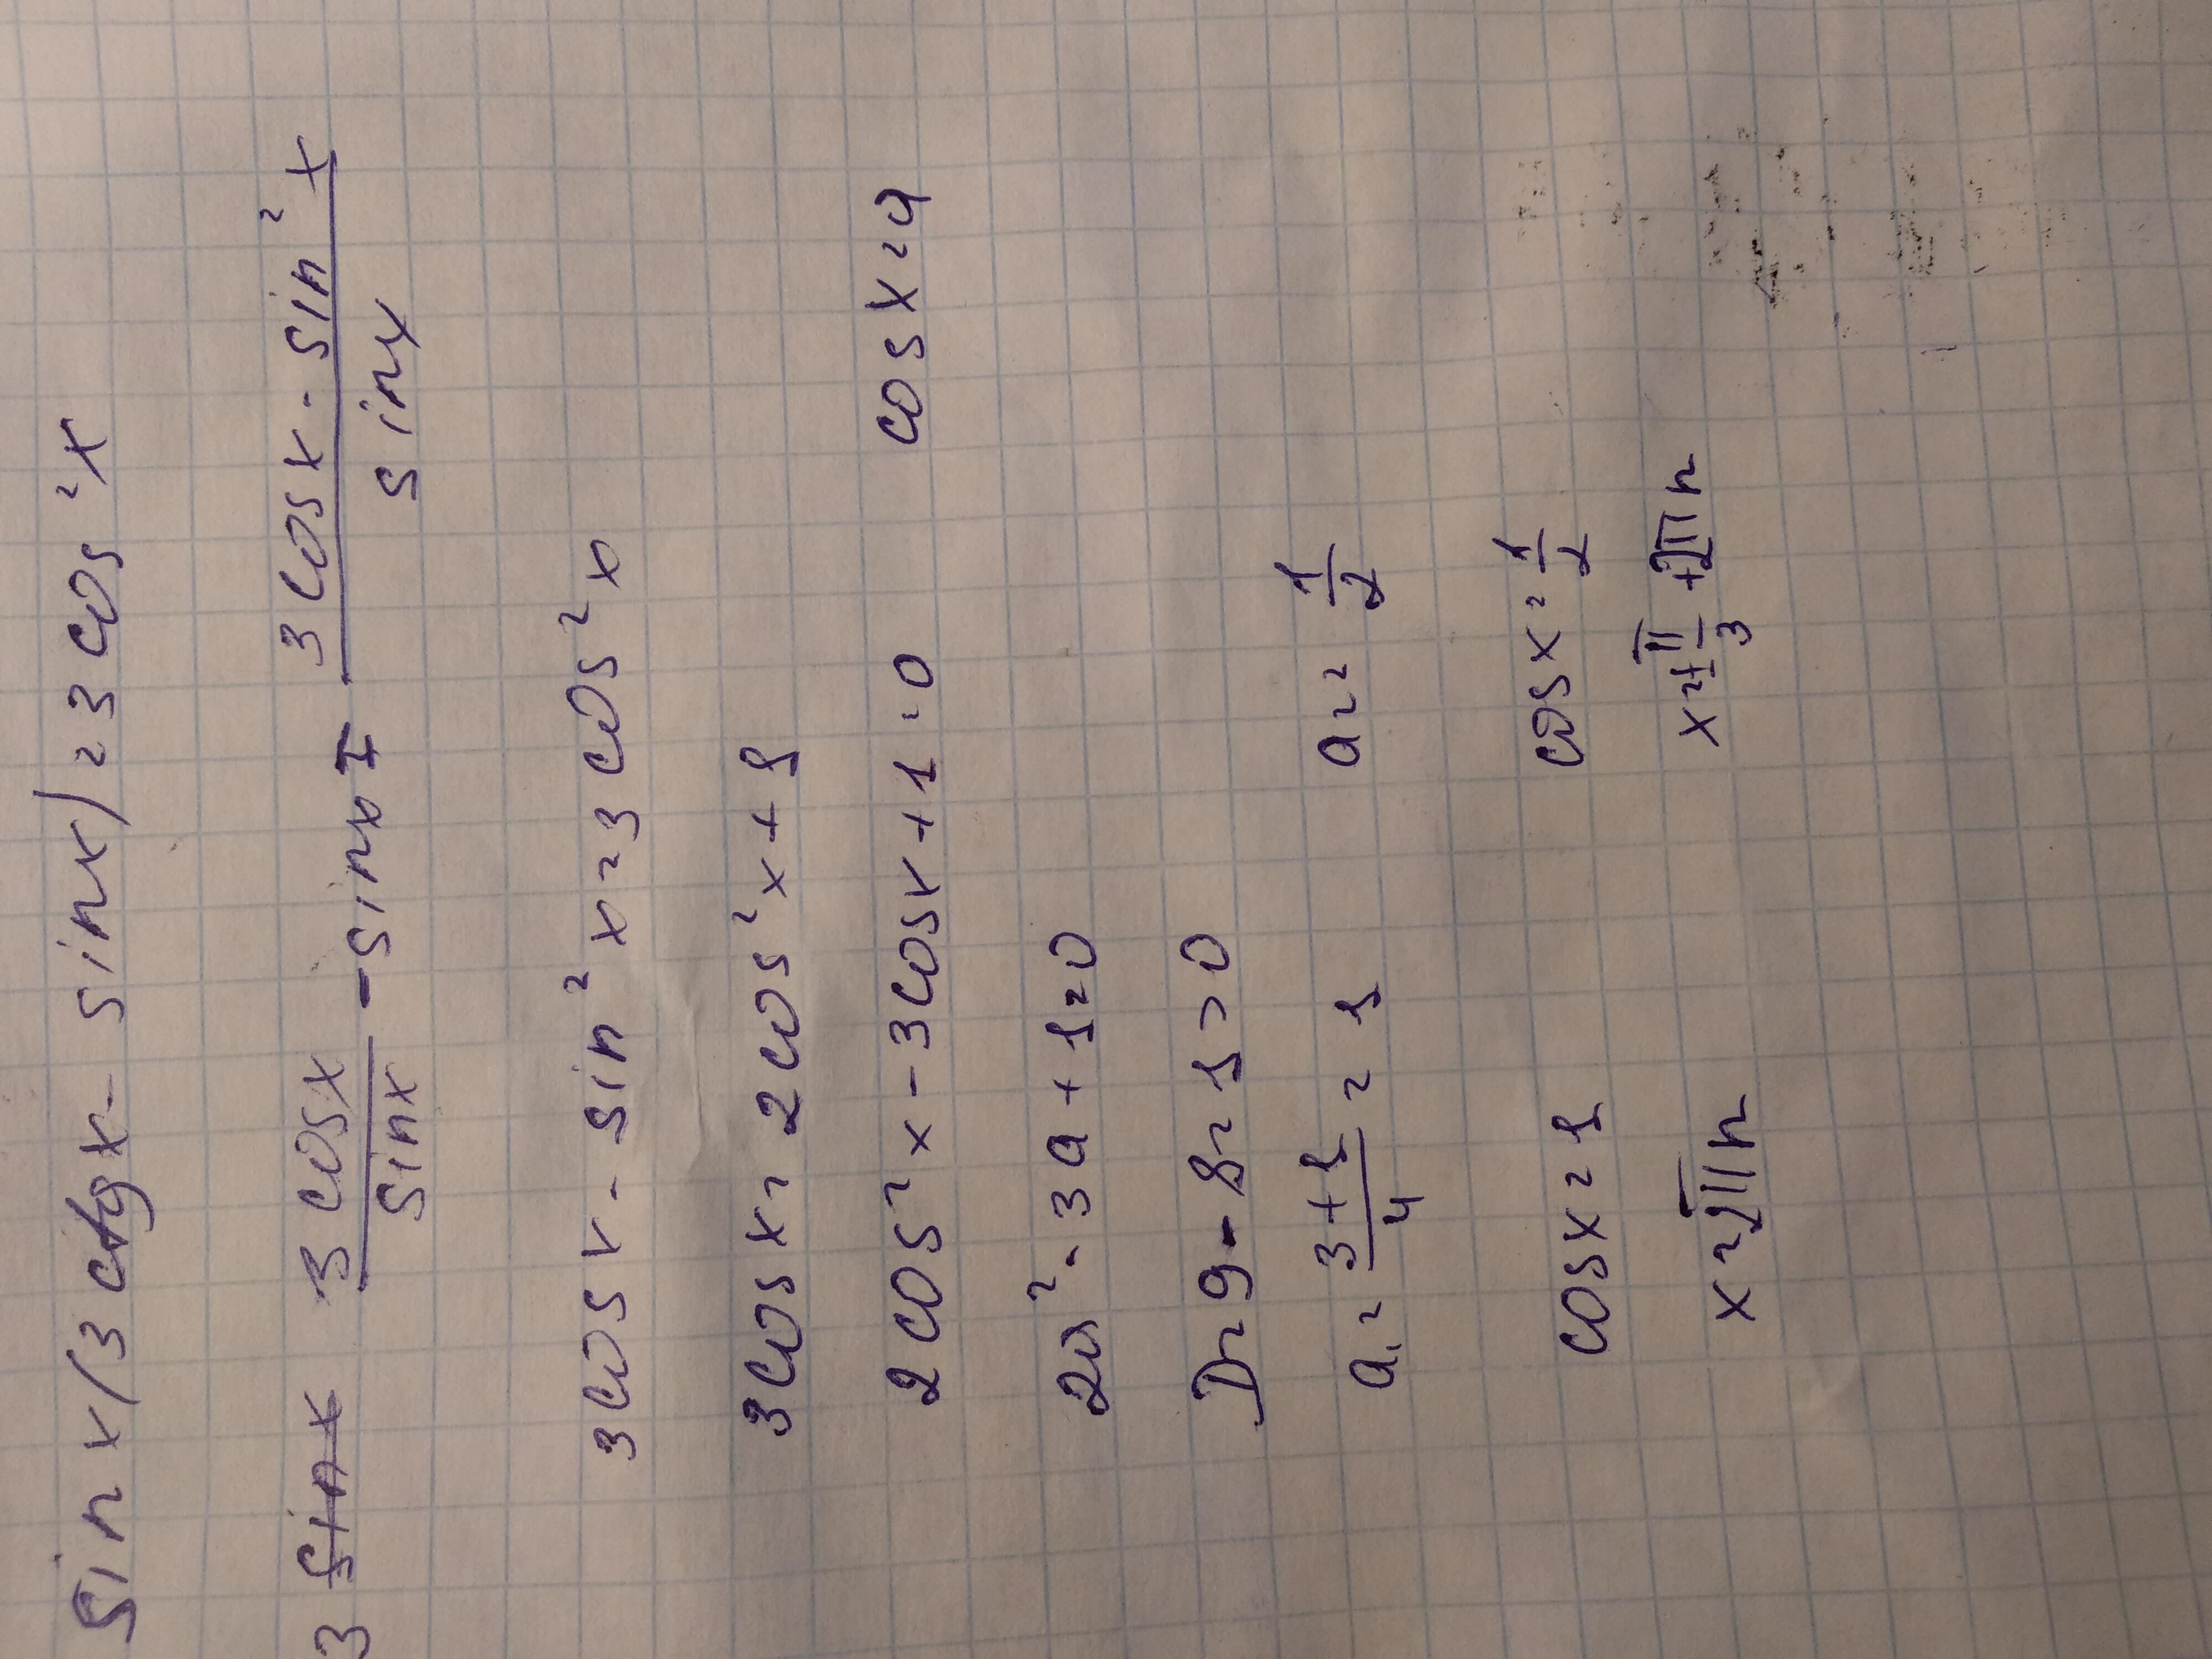 sin x (3 ctg x - sin x) = 3 cos²x
3 sin x 3 cos x / sin x - sin x = 3 cos x - sin²x / sin x
3 cos x - sin²x = 3 cos²x
3 cos x = 2 cos²x + 1
2 cos²x - 3 cos x + 1 = 0 cos x = a
2a² - 3a + 1 = 0
D = 9 - 8 = 1 > 0
a₁ = 3+1 / 4 = 1 a₂ = 1/2
cos x = 1 cos x = 1/2
x = 2πn x = ± π/3 + 2πn